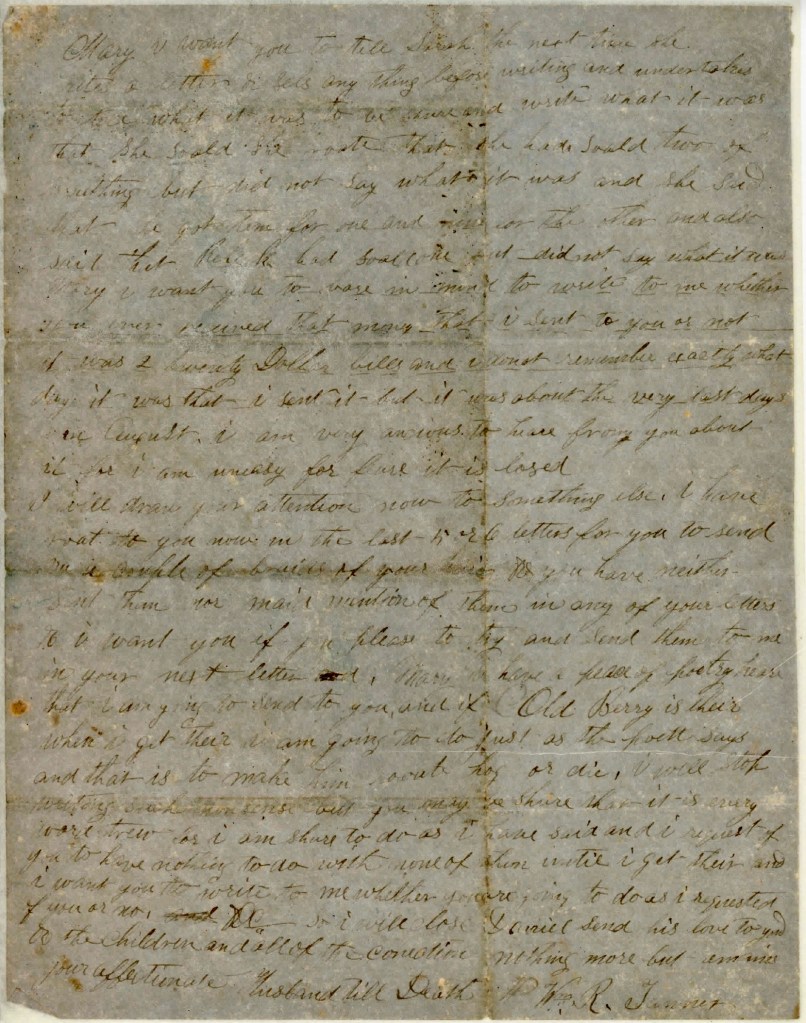 Mary i want you to tell Sarah the next time she
rites a letter or tels any thing before writing and undertakes
to tell what it was to be shure and write what it was
that she soald she wrote that she had soald two of
something but did not say what it was and she said
that he got them for one and for the other and also
said that had soald one but did not say what it was
Mary i want you to bare in mind to write to me whether
you ever received that money that i sent to you or not
it was 2 twenty Dollar bills and i donot remember exactly what
day it was that i sent it but it was about the very last days
in August. i am very anxious to heare from you about
it for i am uneasy for feare it is losed
I will draw your attention now to something else. I have
roat to you now in the last 5 or 6 letters for you to send
me a couple of of your hair & you have neither
sent them nor maid mention of them in any of your letters
& i want you if you please to try and send them to me
in your next letter. Mary i have a peace of poetry heare
that i am going to send to you, and if Old Berry is their
when i get their i am going to do just as the poett says
and that is to make him root hog or die, i will stop
writing such nonsense but you may be shure that it is every
word trew for i am shure to do as i have said and i request of
you to have nothing to do with none of them until i get their and
i want you to write to me whether you are going to do as i requested
of you or no, so i will close Daniel send his love to you
& the children and all of the conection nothing more but remains
your affectionate Husband till Death Wm R. Tanner